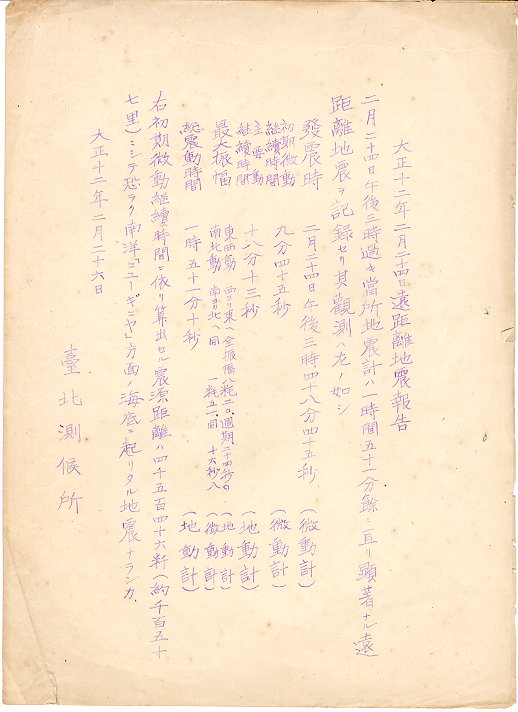 大正十二年二月二十四日遠距離地震報告
二月二十四日午後三時過キ當所地震計ハ一時間五十一分餘ニ亘リ顕著ナル遠
距離地震ヲ記録セリ其観測ハ左ノ如シ
發震時 二月二十四日午後三時四十八分四十五秒 (微動計)
初期微動継續時間 九分四十五秒 (微動計)
主要動継續時間 十八分十三秒 (地動計)
最大振幅 東西動 西ヨリ東ヘ全振幅八粍二〇週期二十四秒〇 (地動計)
南北動 南ヨリ北ヘ同 一粍五一、同 十六秒八 (微動計)
総震動時間 一時五十一分十秒 (地動計)
右初期微動継續時間ニ依リ算出セル震源距離ハ四千五百四十六粁(約千百五十
七里)ニシテ恐ラク南洋「ニューギニヤ」方面ノ海底ニ起リタル地震ナランカ、
大正十二年二月二十六日
臺北測候所